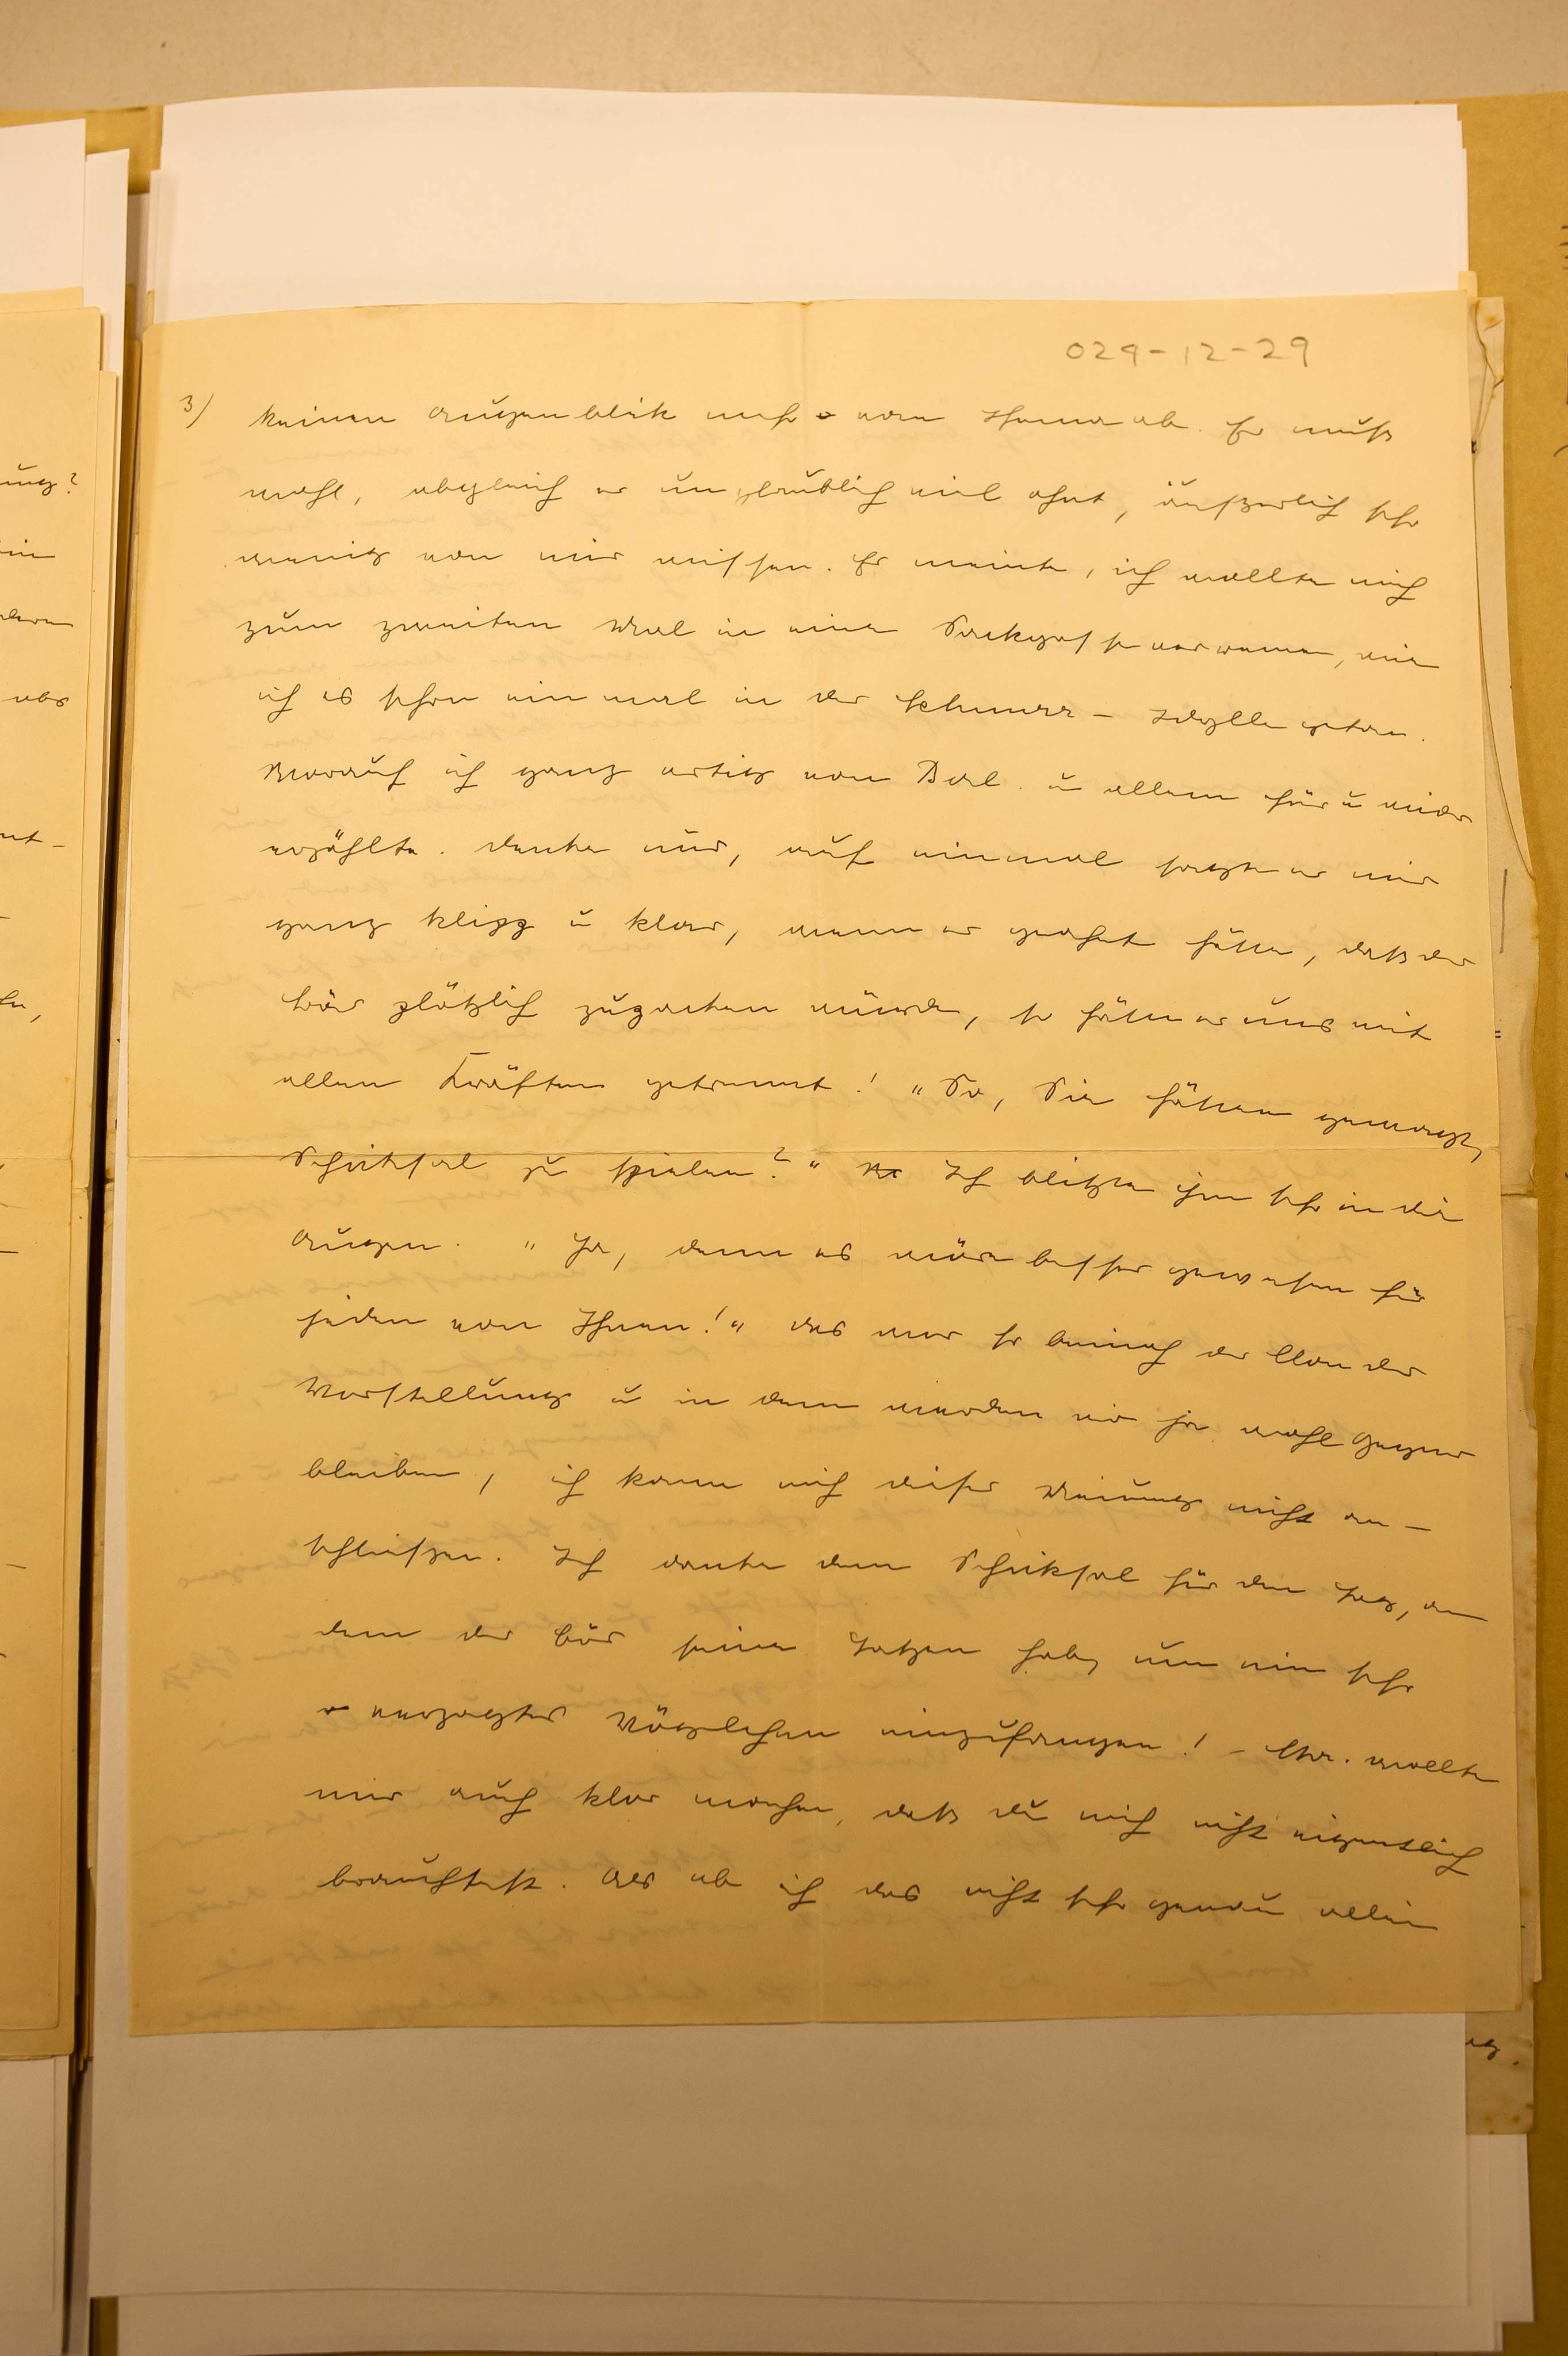 029-12-29
3) keinen Augenblik mehr vom Thema ab. Er muß
wohl, obgleich er unglaublich viel ahnt, äußerlich sehr
wenig von mir wissen. Er meinte, ich wollte mich
zum zweiten Mal in eine Sackgasse verrennen, wie
ich es schon einmal in der – Idylle getan.
Worauf ich ganz artig von u allem für u wider
erzählte. Denke nur, auf einmal sagte er mir
ganz klipp u klar, wenn er geahnt hätte, daß der
Bär plötzlich zupacken würde, so hätte er uns mit
allen Kräften getrennt! „So, Sie hätten gewagt,
Schiksal zu spielen?" Ich blitzte ihm sehr in die
Augen. „Ja, denn es wäre besser gewesen für
jeden von Ihnen!" Das war so beinah der Clou der
Vorstellung u in dem werden wir ja wohl Gegner
bleiben, ich kann mich dieser Meinung nicht an–
schließen. Ich danke dem Schiksal für den Tag, an
dem der Bär seine Tatzen hob, um ein sehr
verzagtes Vögelchen einzufangen! – Chr. wollte
mir auch klar machen, daß du mich nicht eigentlich
brauchtest. Als ob ich das nicht sehr genau allein
ung?
ein
ab